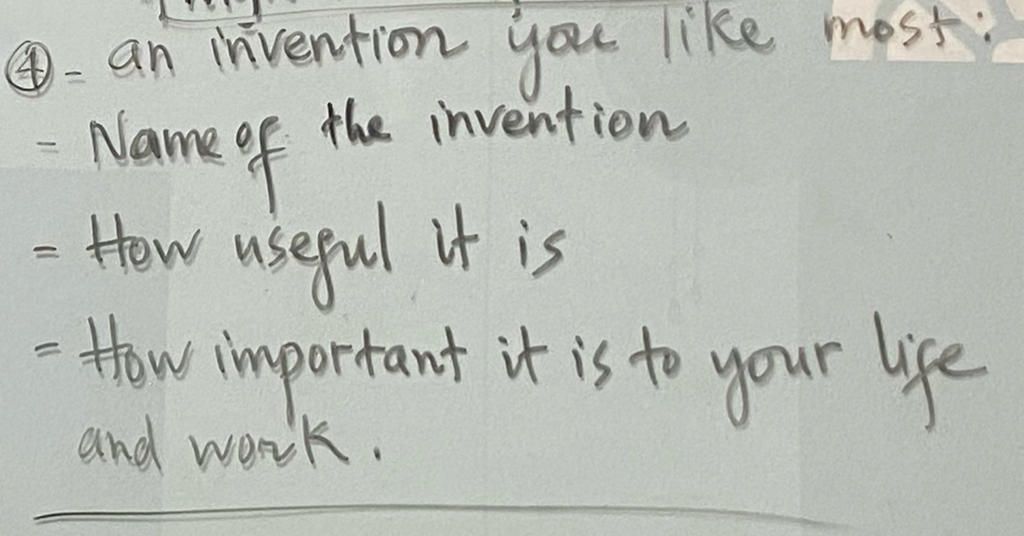 ④- an invention you like most:
- Name of the invention
= How useful it is
= How important it is to your life
and work.